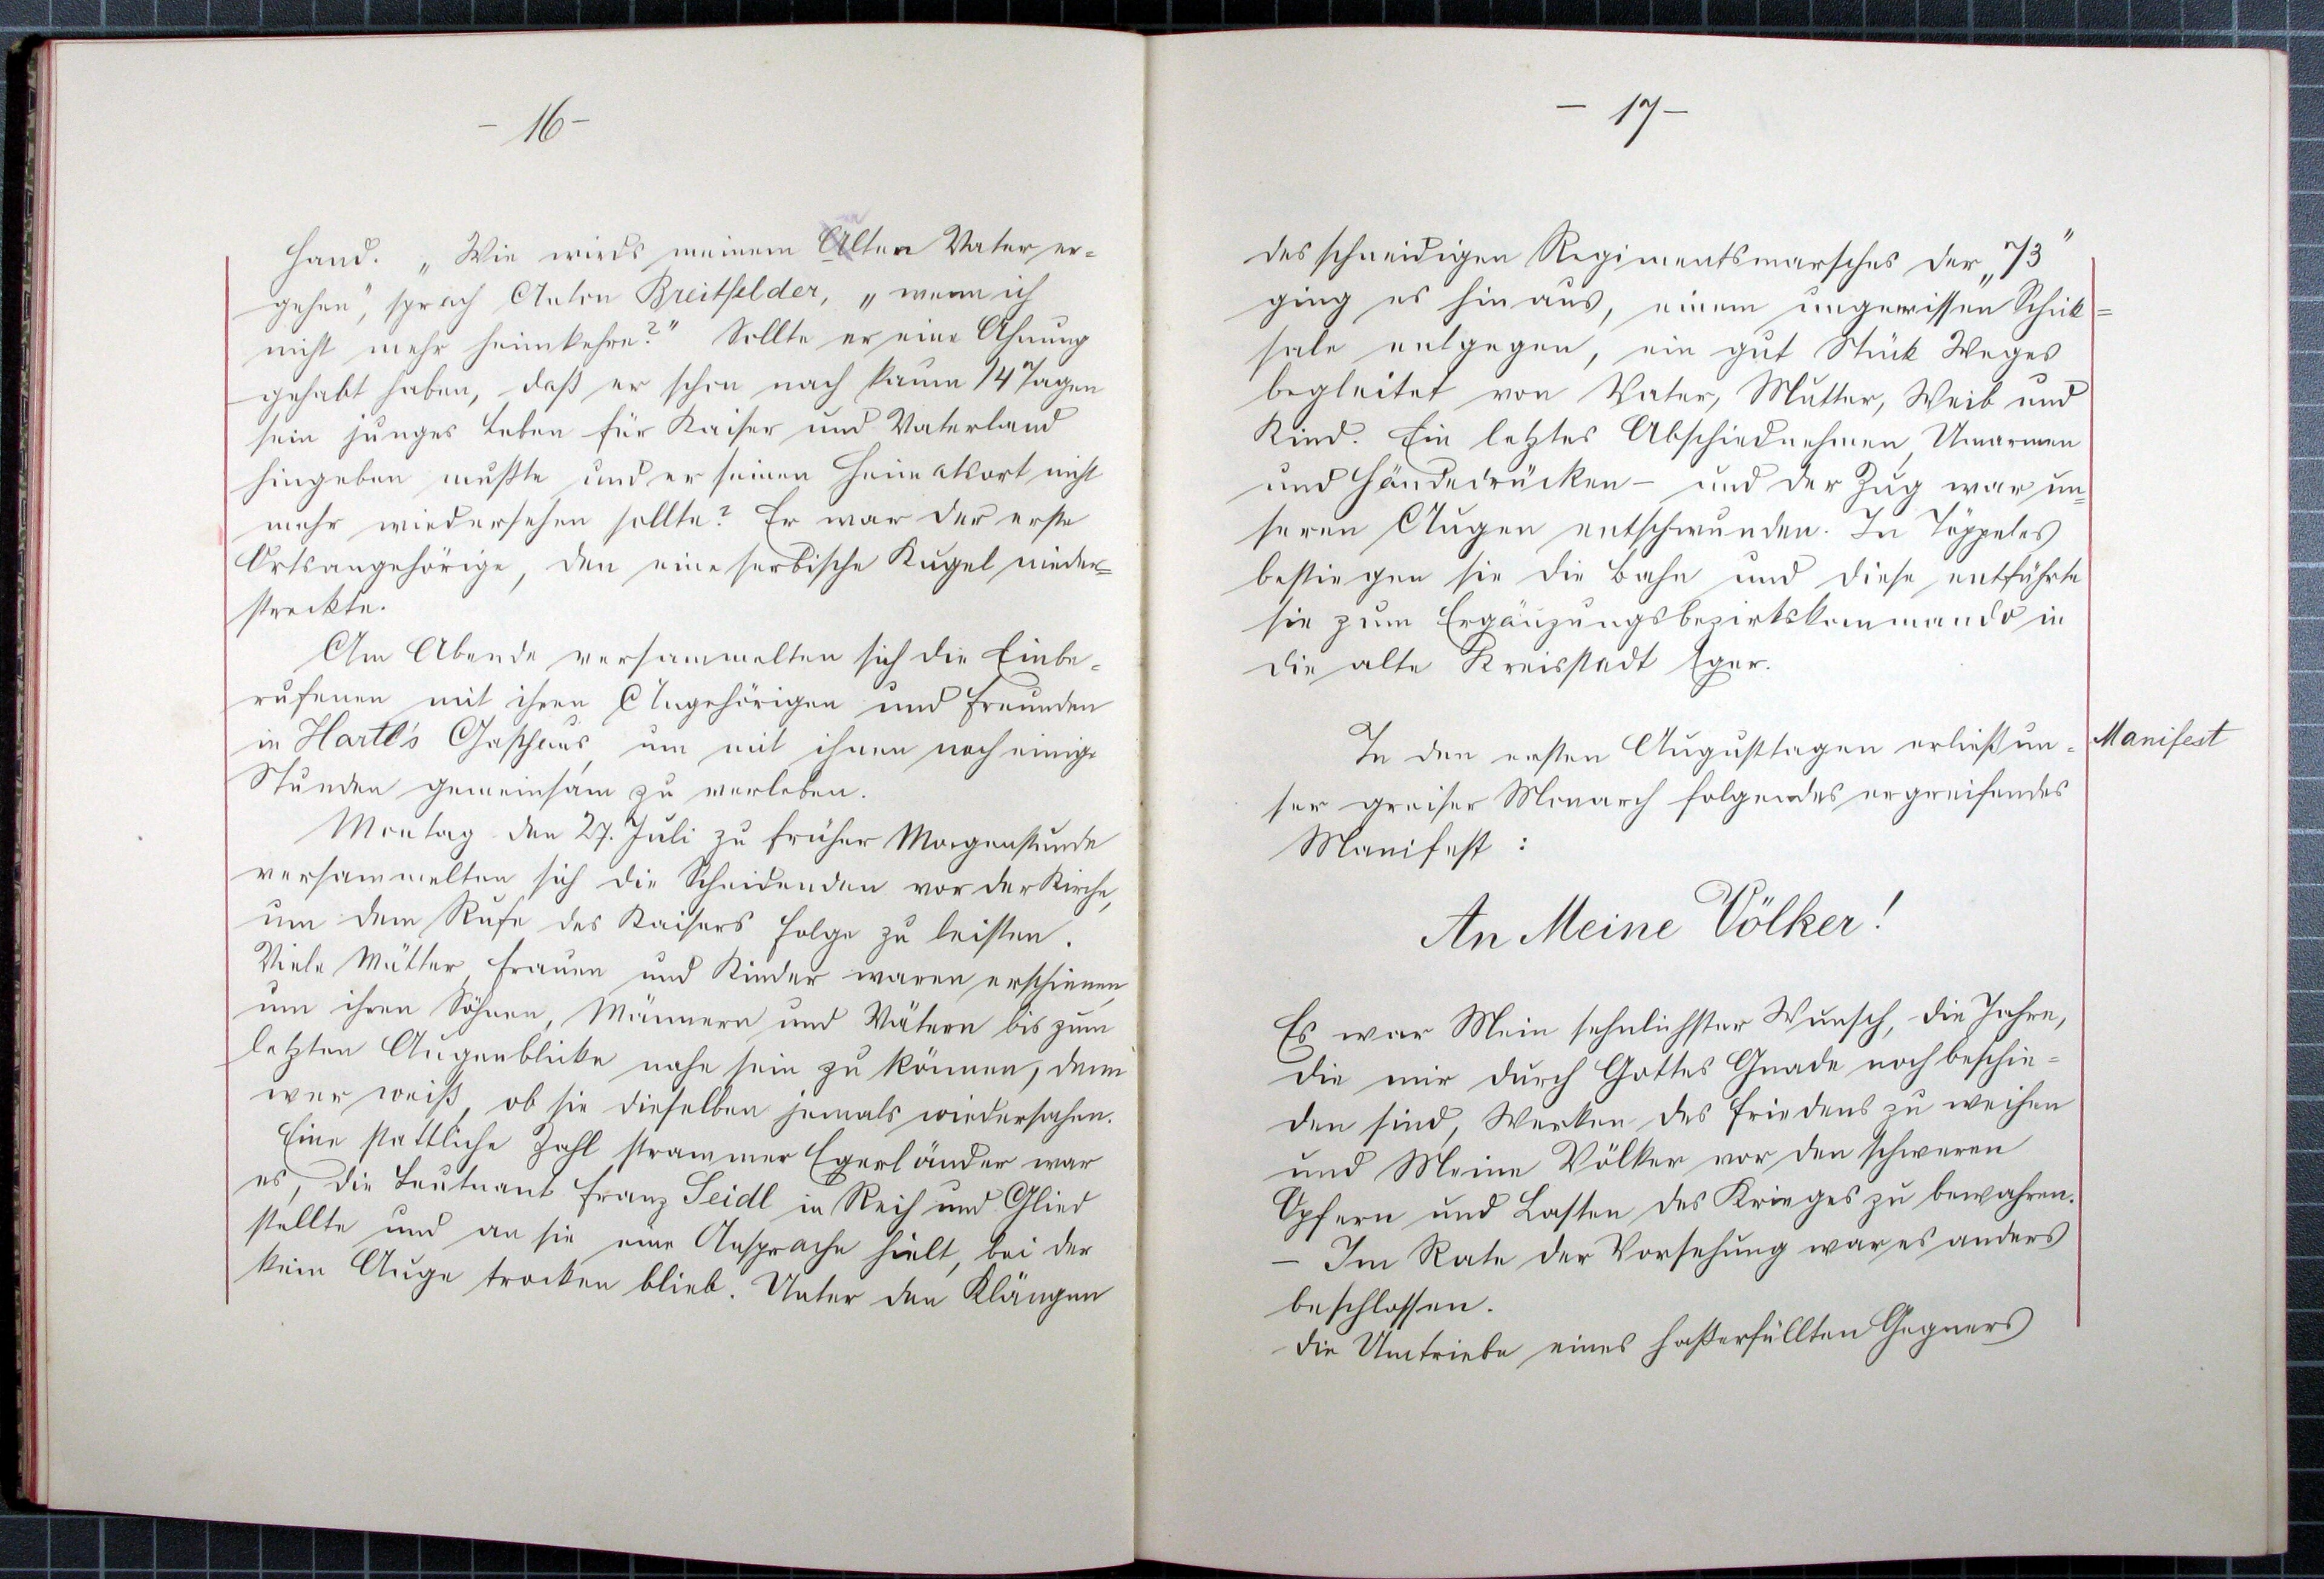 - 16 -
Hand. „Wie wirds meinem Alten Vater er=
gehen", sprach Anton Breitfelder, „wenn ich
nicht mehr heimkehre?" Sollte er eine Ahnung
gehabt haben, daß er schon nach kaum 14 Tagen
sein junges Leben für Kaiser und Vaterland
hingeben mußte und er seinen Heimatsort nicht
mehr wiedersehen sollte? Er war der erste
Ortsangehörige, den eine serbische Kugel nieder=
streckte.
Am Abende versammelten sich die Einbe=
rufenen mit ihren Angehörigen und Freunden
in Hartl's Gasthaus, um mit ihnen noch einige
Stunden gemeinsam zu verleben.
Montag den 27. Juli zu früher Morgenstunde
versammelten sich die Scheidenden vor der Kirche,
um dem Rufe des Kaisers Folge zu leisten.
Viele Mütter, Frauen und Kinder waren erschienen,
um ihren Söhnen, Männern und Vätern bis zum
letzten Augenblicke nahe sein zu können, denn
wer weiß, ob sie dieselben jemals wiedersahen.
Eine stattliche Zahl strammer Egerländer war
es, die Leutnant Franz Seidl in Reih und Glied
stellte und an sie eine Ansprache hielt, bei der
kein Auge trocken blieb. Unter den Klängen
- 17 -
des schneidigen Regimentsmarsches der „73"
ging es hinaus, einem ungewissen Schick=
sale entgegen, ein gut Stück Weges
begleitet von Vater, Mutter, Weib und
Kind. Ein letztes Abschiednehmen, Umarmen
und Händedrücken - und der Zug war un=
seren Augen entschwunden. In Töppeles
bestiegen sie die Bahn und diese entführte
sie zum Ergänzungsbezirkskommando in
die alte Kreisstadt Eger.
In den ersten Augusttagen erließ un=
Manifest
ser greiser Monarch folgendes ergreifendes
Manifest:
An Meine Völker!
Es war Mein sehnlichster Wunsch, die Jahre,
die mir durch Gottes Gnade noch beschie=
den sind, Werken des Friedens zu weihen
und Meine Völker vor den schweren
Opfern und Lasten des Krieges zu bewahren.
- Im Rate der Vorsehung war es anders
beschlossen.
Die Umtriebe eines haßerfüllten Gegners